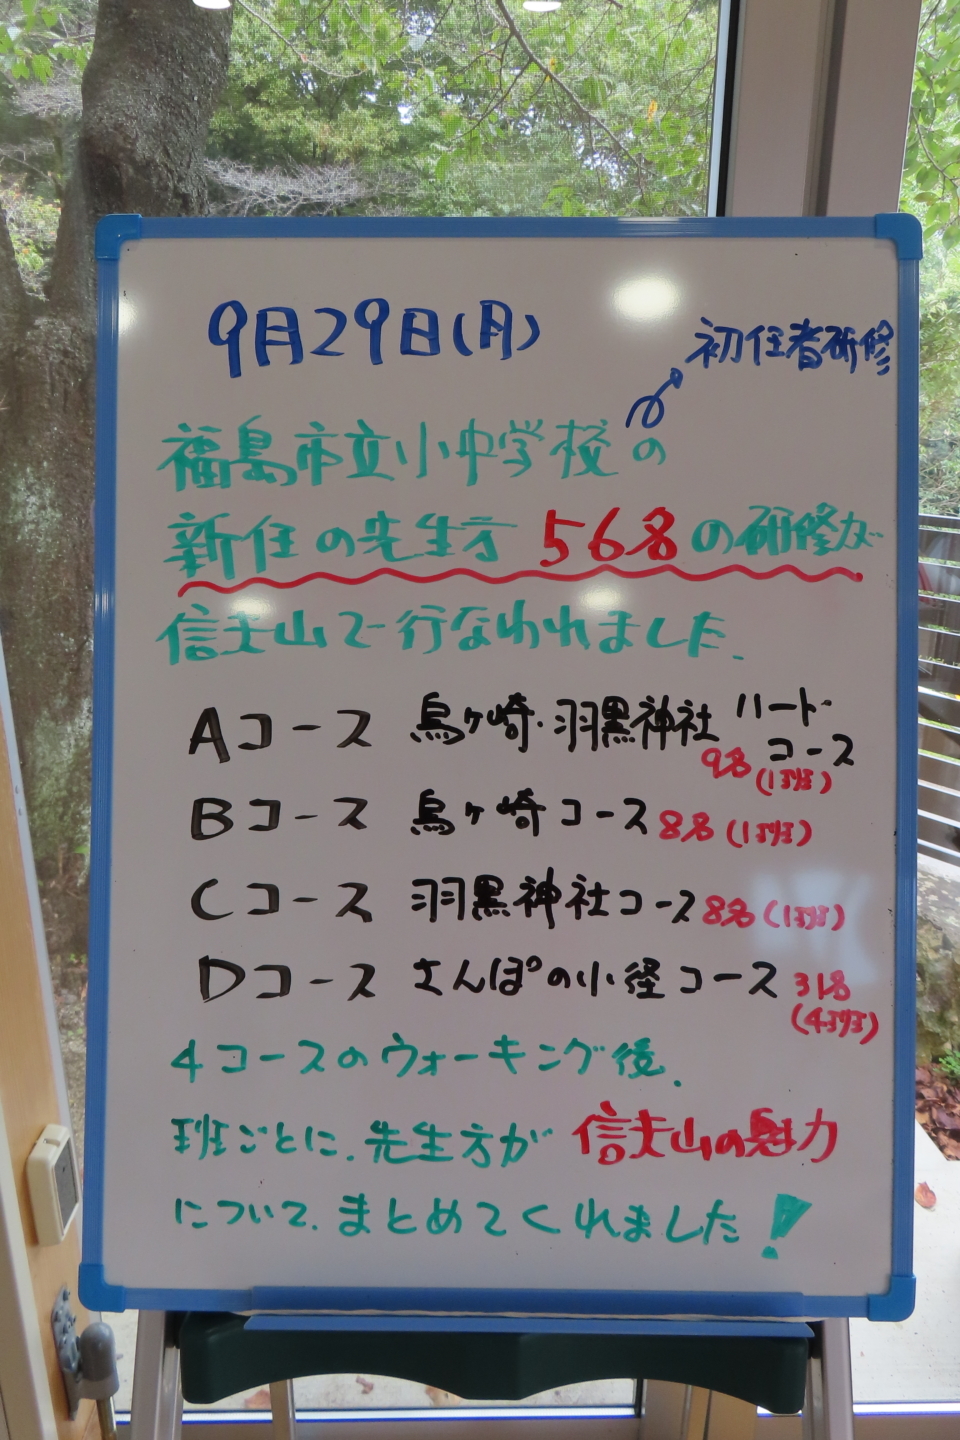 9月29日(月)
初任者研修
福島市立小中学校の
新任の先生方 56名の研修が
信夫山で行なわれました.
Aコース 烏ヶ崎・羽黒神社 ハード
コース
9名
(1班)
Bコース 烏ヶ崎コース 8名 (1班)
Cコース 羽黒神社コース 8名 (1班)
Dコース さんぽの小径コース 31名
(4班)
4コースのウォーキング後.
班ごとに.先生方が 信夫山の魅力
について.まとめてくれました!